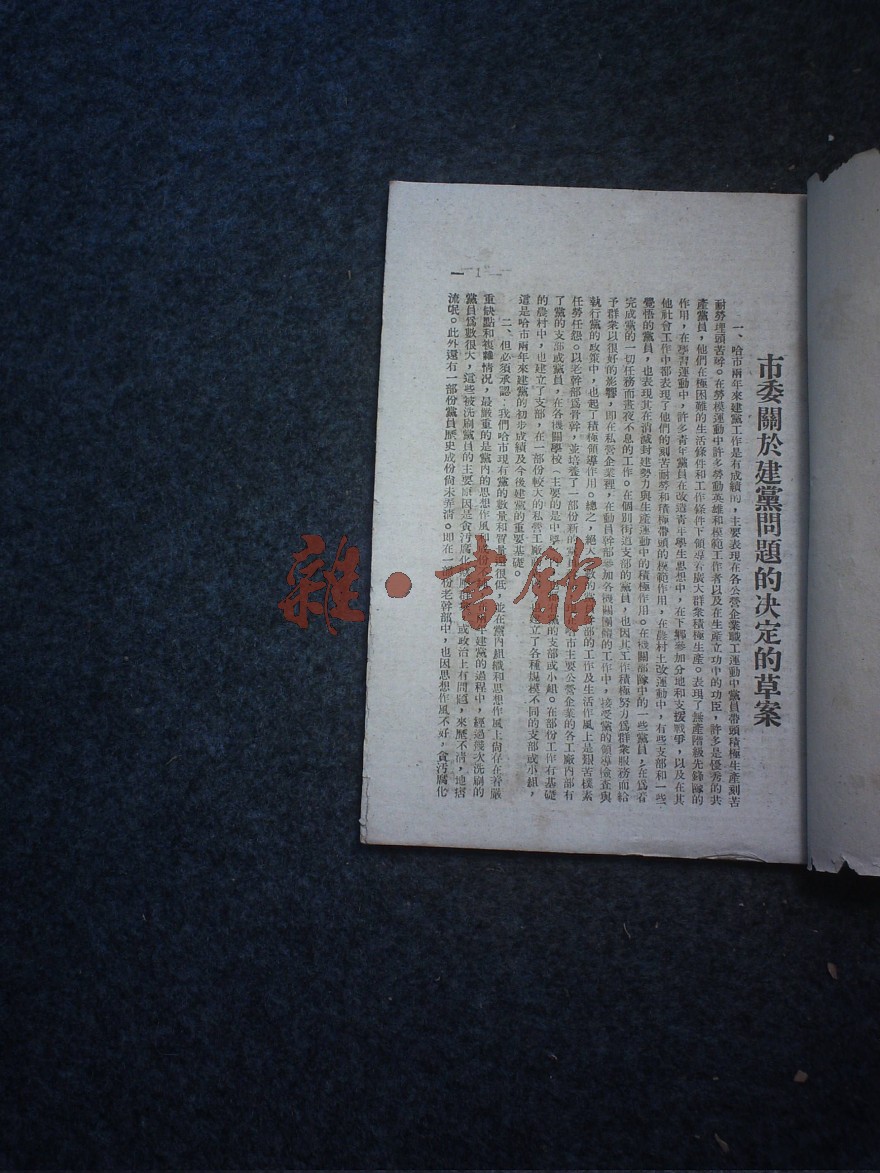 市委關於建黨問題的決定的草案
一、哈市兩年來建黨工作是有成績的，主要表現在各公營企業職工運動中黨員帶頭積極生產刻苦
耐勞埋頭苦幹。在勞模運動中許多勞動英雄和模範工作者以及在生產立功中的功臣，許多是優秀的共
產黨員，他們在極困難的生活條件和工作條件下領導着廣大群衆積極生產。表現了無產階級先鋒隊的
作用，在學習運動中，許多青年黨員在改造青年學生思想中，在下鄉參加分地和支援戰爭，以及在其
他社會工作中都表現了他們的刻苦耐勞和積極帶頭的模範作用，在農村土改運動中，有些支部和一些
覺悟的黨員，也表現其在消滅封建勢力與生產運動中的積極作用。在機關部隊中的一些黨員，在爲着
完成黨的一切任務而晝夜不息的工作。在個別街道支部的黨員，也因其工作積極努力爲群衆服務而給
予群衆以很好的影響，即在私營企業裡，在動員幹部參加各機關團體的工作中，接受黨的領導檢查與
執行黨的政策中，也起了積極領導作用。總之，絕大 數的 部的工作及生活作風上是艱苦樸素
任勞任怨。以老幹部爲骨幹，並培養了一部份新的 市主要公營企業的各工廠內部有
了黨的支部或黨員，在各機關學校（主要的是中學 的支部或小組。在部份工作有基礎
的農村中，也建立了支部，在一部份較大的私營工廠 建立了各種規模不同的支部或小組，
這是哈市兩年來建黨的初步成績及今後建黨的重要基礎。
二、但必須承認：我們哈市現有黨的數量和質 很低，並在黨內組織和思想作風上尚存在着嚴
重缺點和複雜情況，最嚴重的是黨內的思想作風 份 建黨的過程中，經過幾次洗刷的
黨員爲數很大，這些被洗刷黨員的主要原因是貪汚腐化 或政治上有問題，來歷不清，地痞
流氓。此外還有一部份黨員歷史成份尚未弄清。即在一 份老幹部中，也因思想作風不好，貪汚腐化
— 1 —
雜·書館